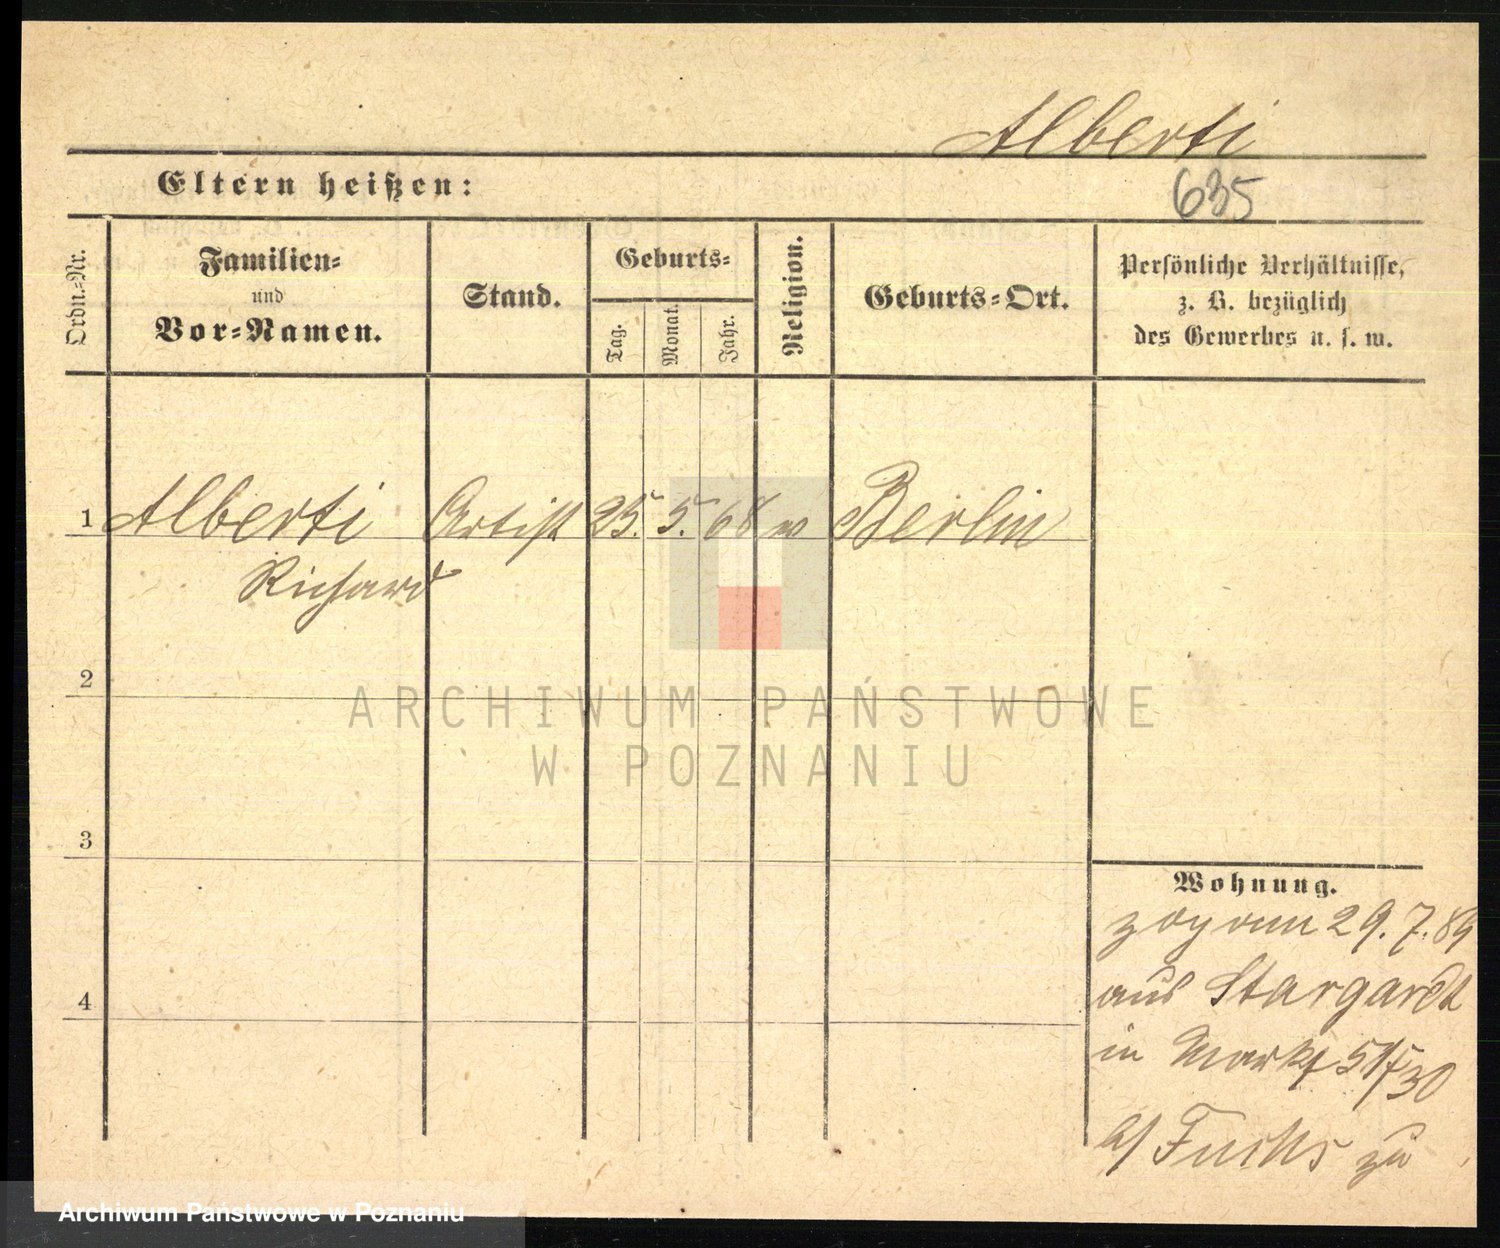 Alberti
Eltern heißen:
635
Ordn.-Nr.
Familien-
und
Vor-Namen.
Stand.
Geburts-
Tag.
Monat.
Jahr.
Religion.
Geburts-Ort.
Persönliche Verhältnisse,
z. B. bezüglich
des Gewerbes u. s. w.
1 Alberti Artist 25. 5. 68 Berlin
Richard
2
ARCHIWUM PAŃSTWOWE
W POZNANIU
3
Wohnung.
zog am 29.7.89
4
aus Stargardt
in Markt 51/30
b/ Fuchs zu
Archiwum Państwowe w Poznaniu